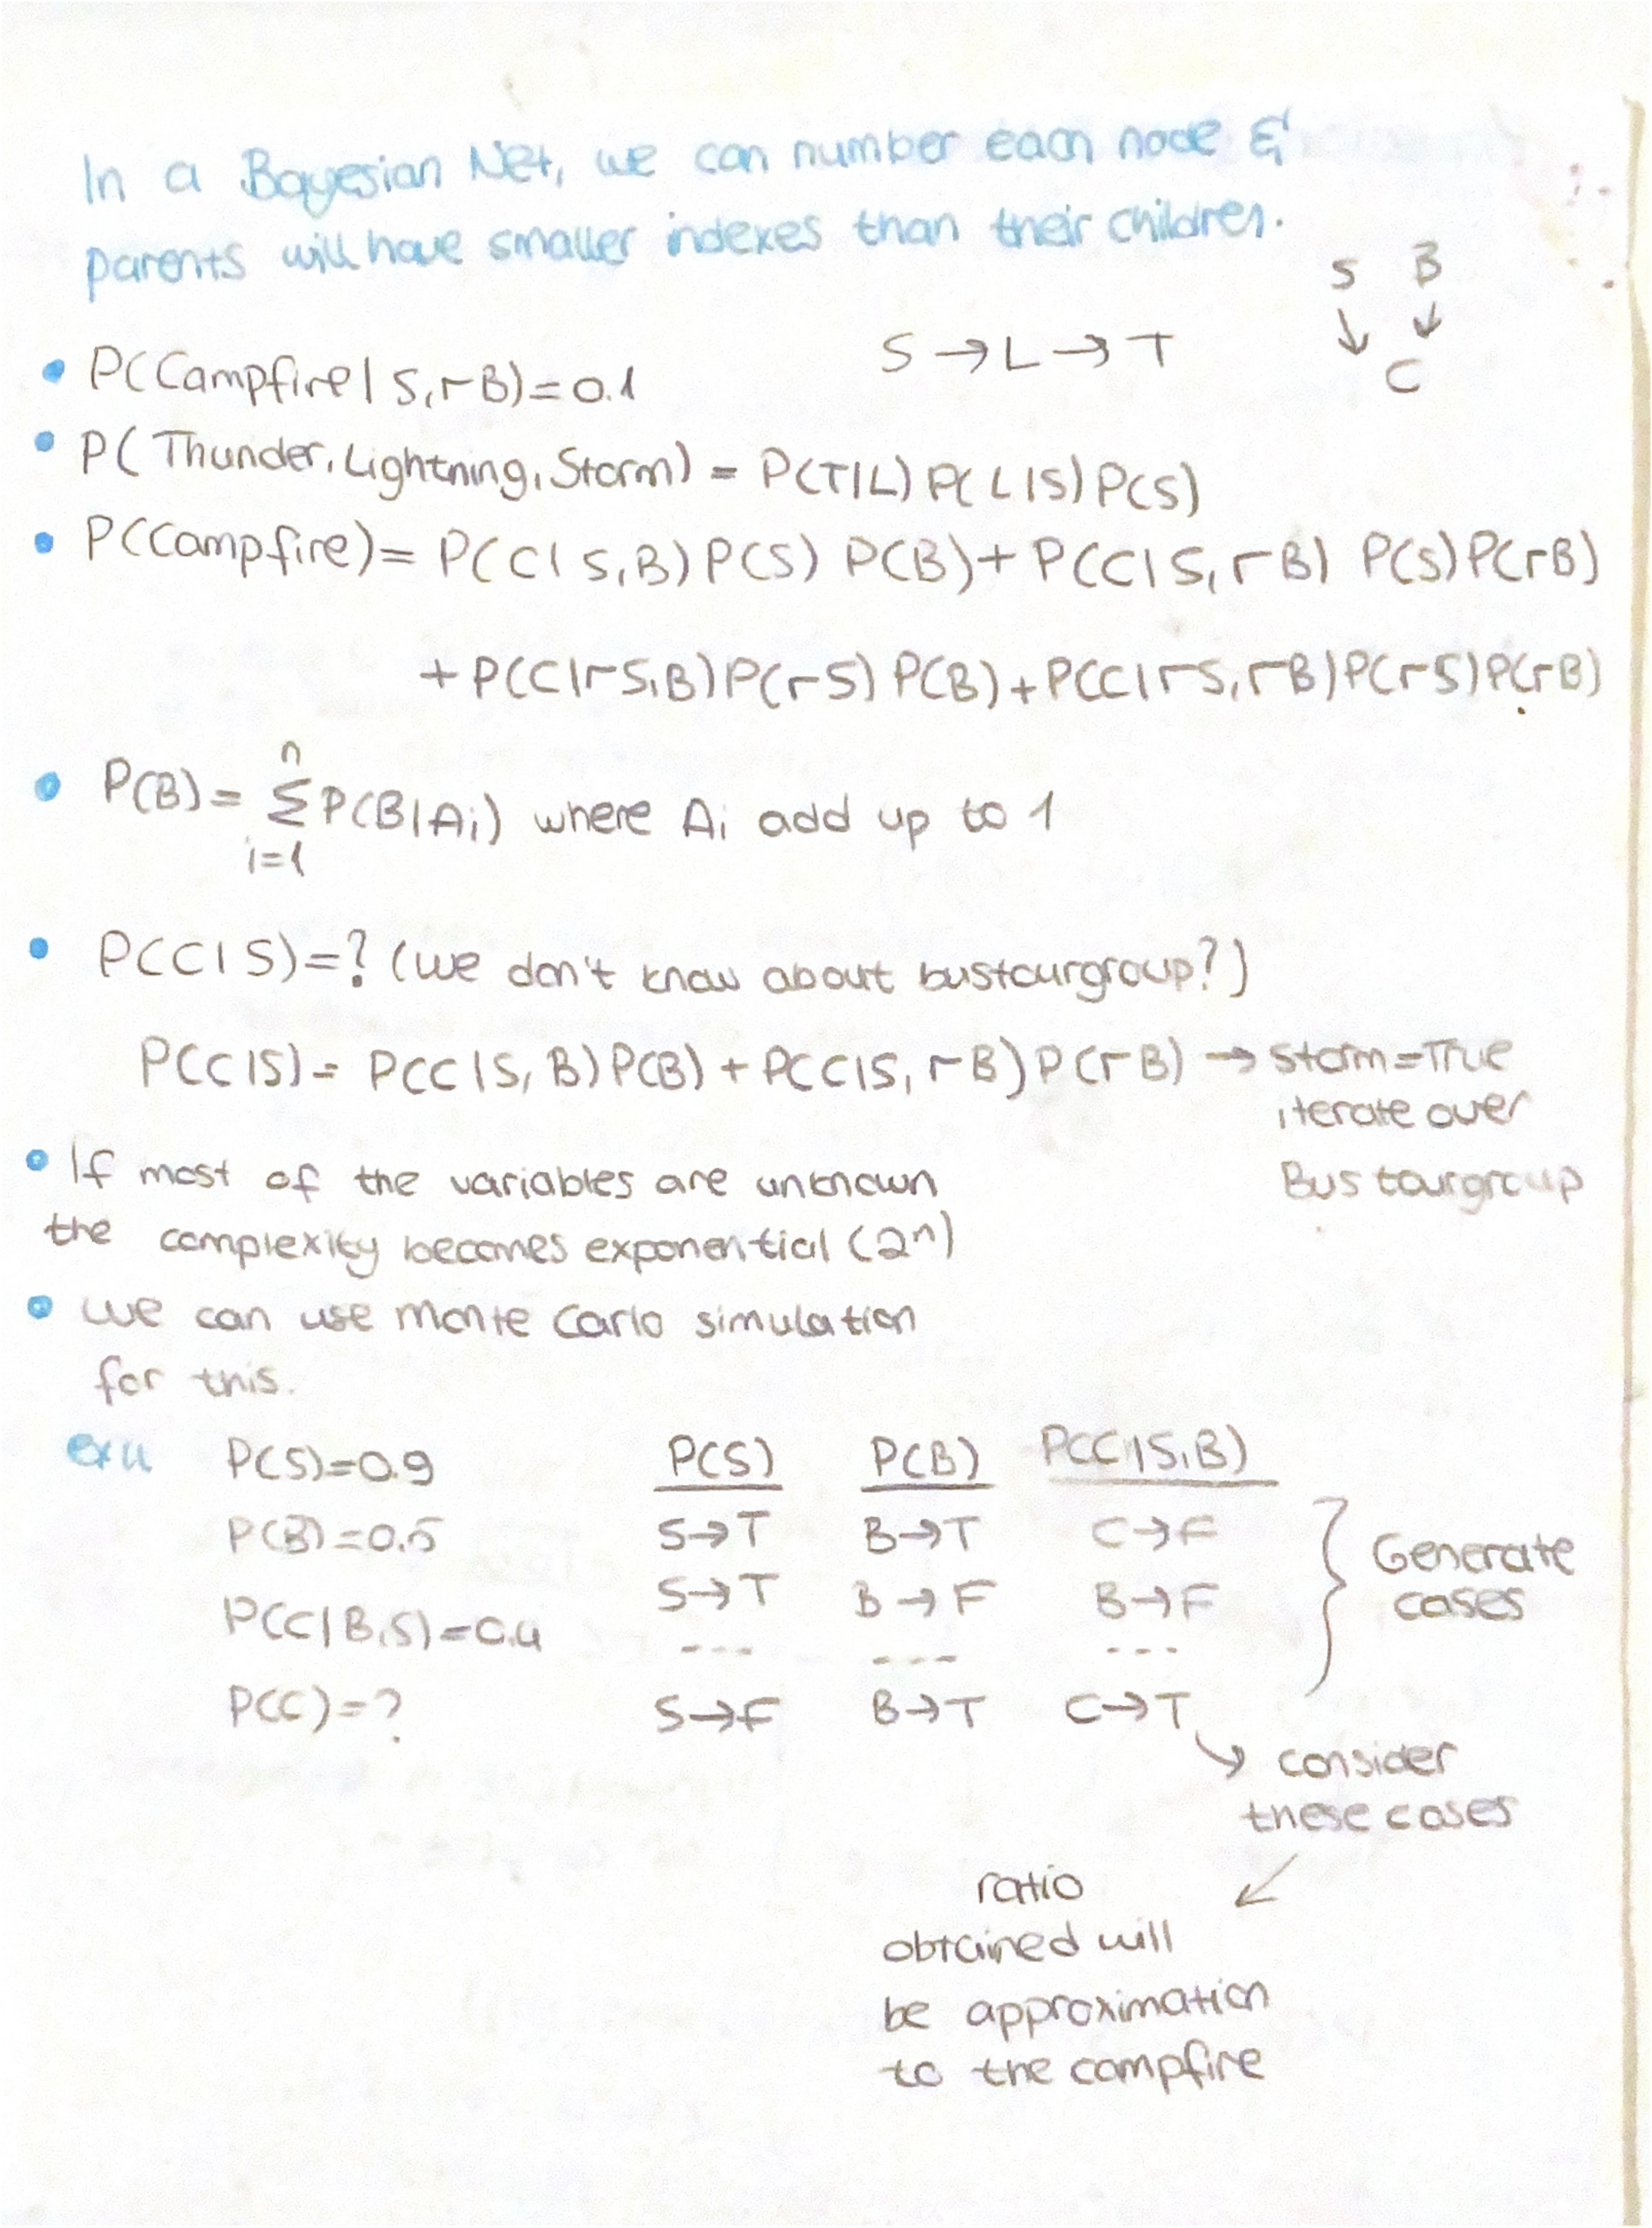 In a Bayesian Net, we can number each node &
parents will have smaller indexes than their children.
S B
↓ ↓
C
S → L → T
• P(Campfire | S, ¬B) = 0.1
• P(Thunder, Lightning, Storm) = P(T|L) P(L|S) P(S)
• P(Campfire) = P(C|S,B) P(S) P(B) + P(C|S,¬B) P(S) P(¬B)
+ P(C|¬S,B) P(¬S) P(B) + P(C|¬S,¬B) P(¬S) P(¬B)
• P(B) = n Σ i=1 P(B|Ai) where Ai add up to 1
• P(C|S) = ? (we don't know about bustourgroup?)
P(C|S) = P(C|S,B) P(B) + P(C|S,¬B) P(¬B) → Storm = True
iterate over
Bus tourgroup
• If most of the variables are unknown
the complexity becomes exponential (2ⁿ)
• we can use Monte Carlo simulation
for this.
P(S) = 0.9 P(S) P(B) P(C|S,B)
P(B) = 0.5 S→T B→T C→F
S→T B→F B→F
P(C|B,S) = 0.4 --- --- ---
P(C) = ? S→F B→T C→T
Generate
cases
↘ consider
these cases
↙
ratio
obtained will
be approximation
to the campfire